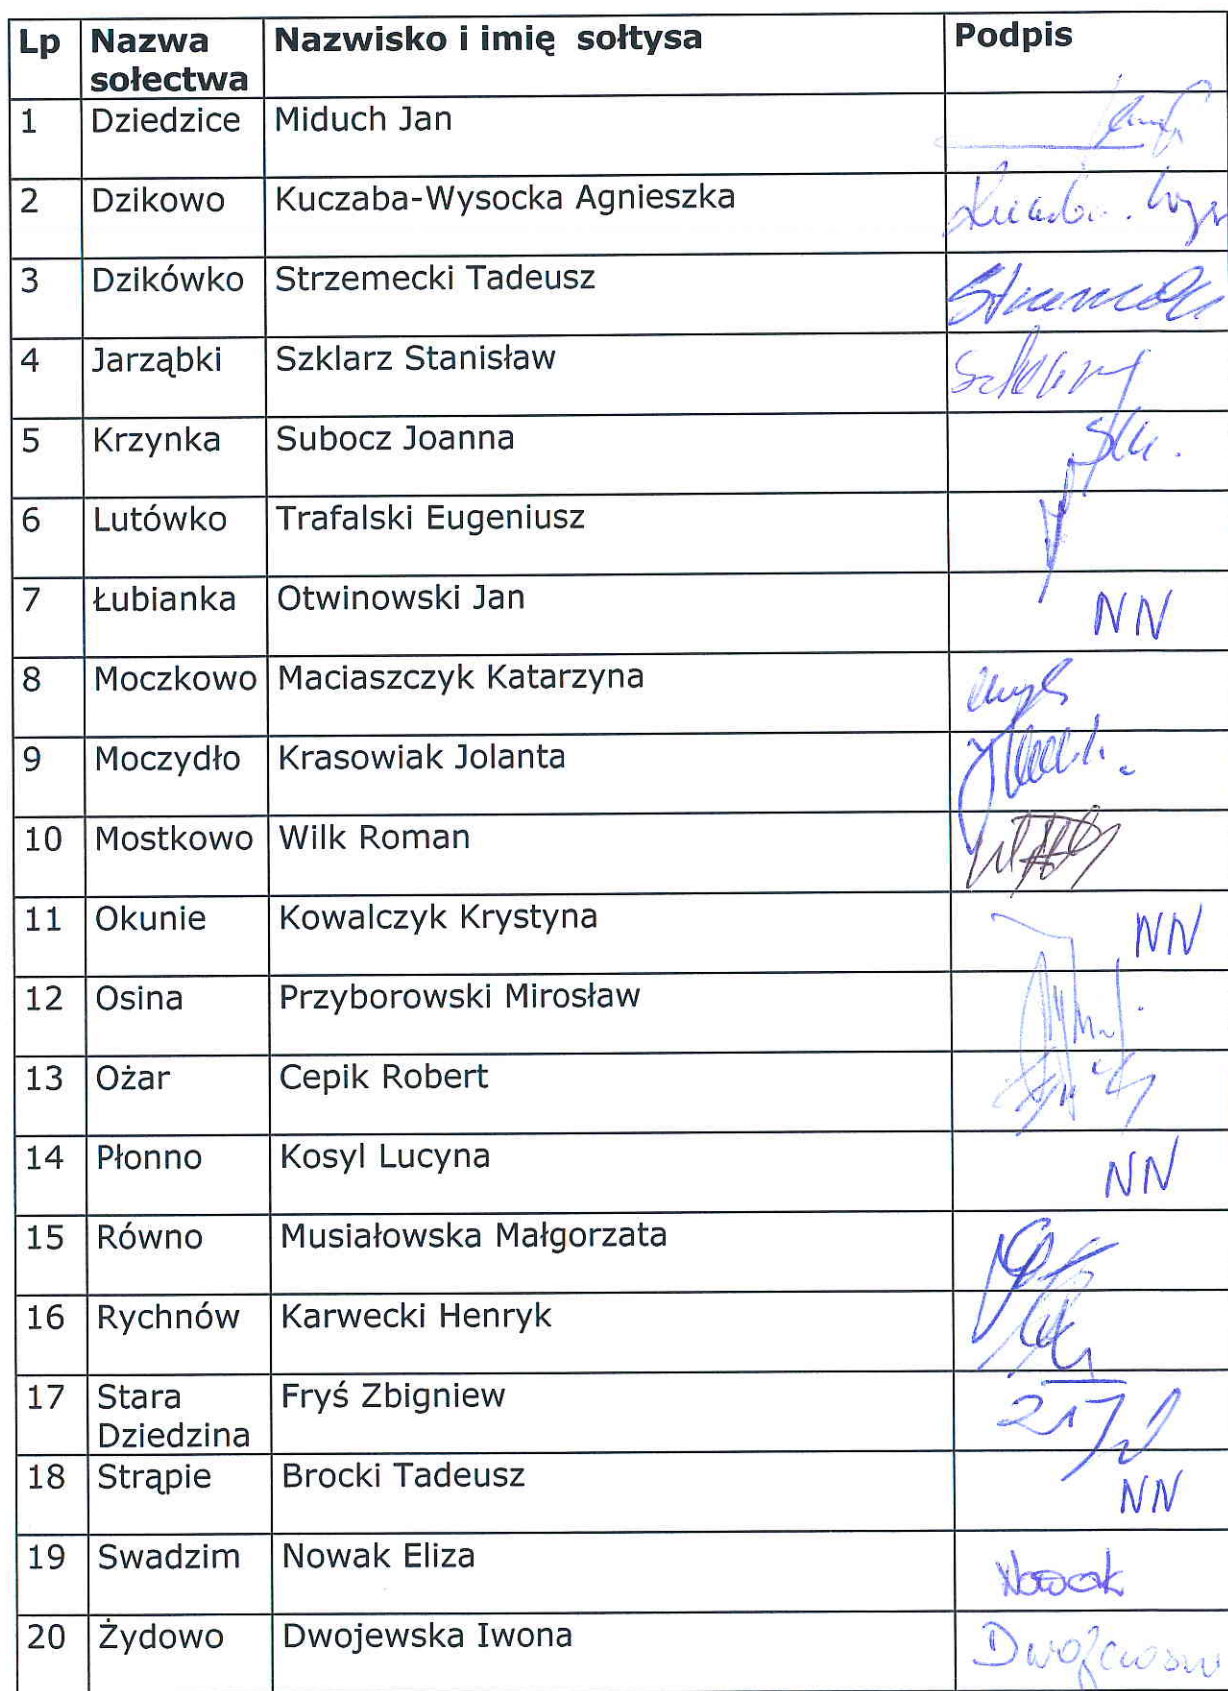 Lp Nazwa sołectwa Nazwisko i imię sołtysa Podpis
1 Dziedzice Miduch Jan
2 Dzikowo Kuczaba-Wysocka Agnieszka
3 Dzikówko Strzemecki Tadeusz
4 Jarząbki Szklarz Stanisław
5 Krzynka Subocz Joanna
6 Lutówko Trafalski Eugeniusz
7 Łubianka Otwinowski Jan NN
8 Moczkowo Maciaszczyk Katarzyna
9 Moczydło Krasowiak Jolanta
10 Mostkowo Wilk Roman
11 Okunie Kowalczyk Krystyna NN
12 Osina Przyborowski Mirosław
13 Ożar Cepik Robert
14 Płonno Kosyl Lucyna NN
15 Równo Musiałowska Małgorzata
16 Rychnów Karwecki Henryk
17 Stara Dziedzina Fryś Zbigniew
18 Strąpie Brocki Tadeusz NN
19 Swadzim Nowak Eliza Nowak
20 Żydowo Dwojewska Iwona